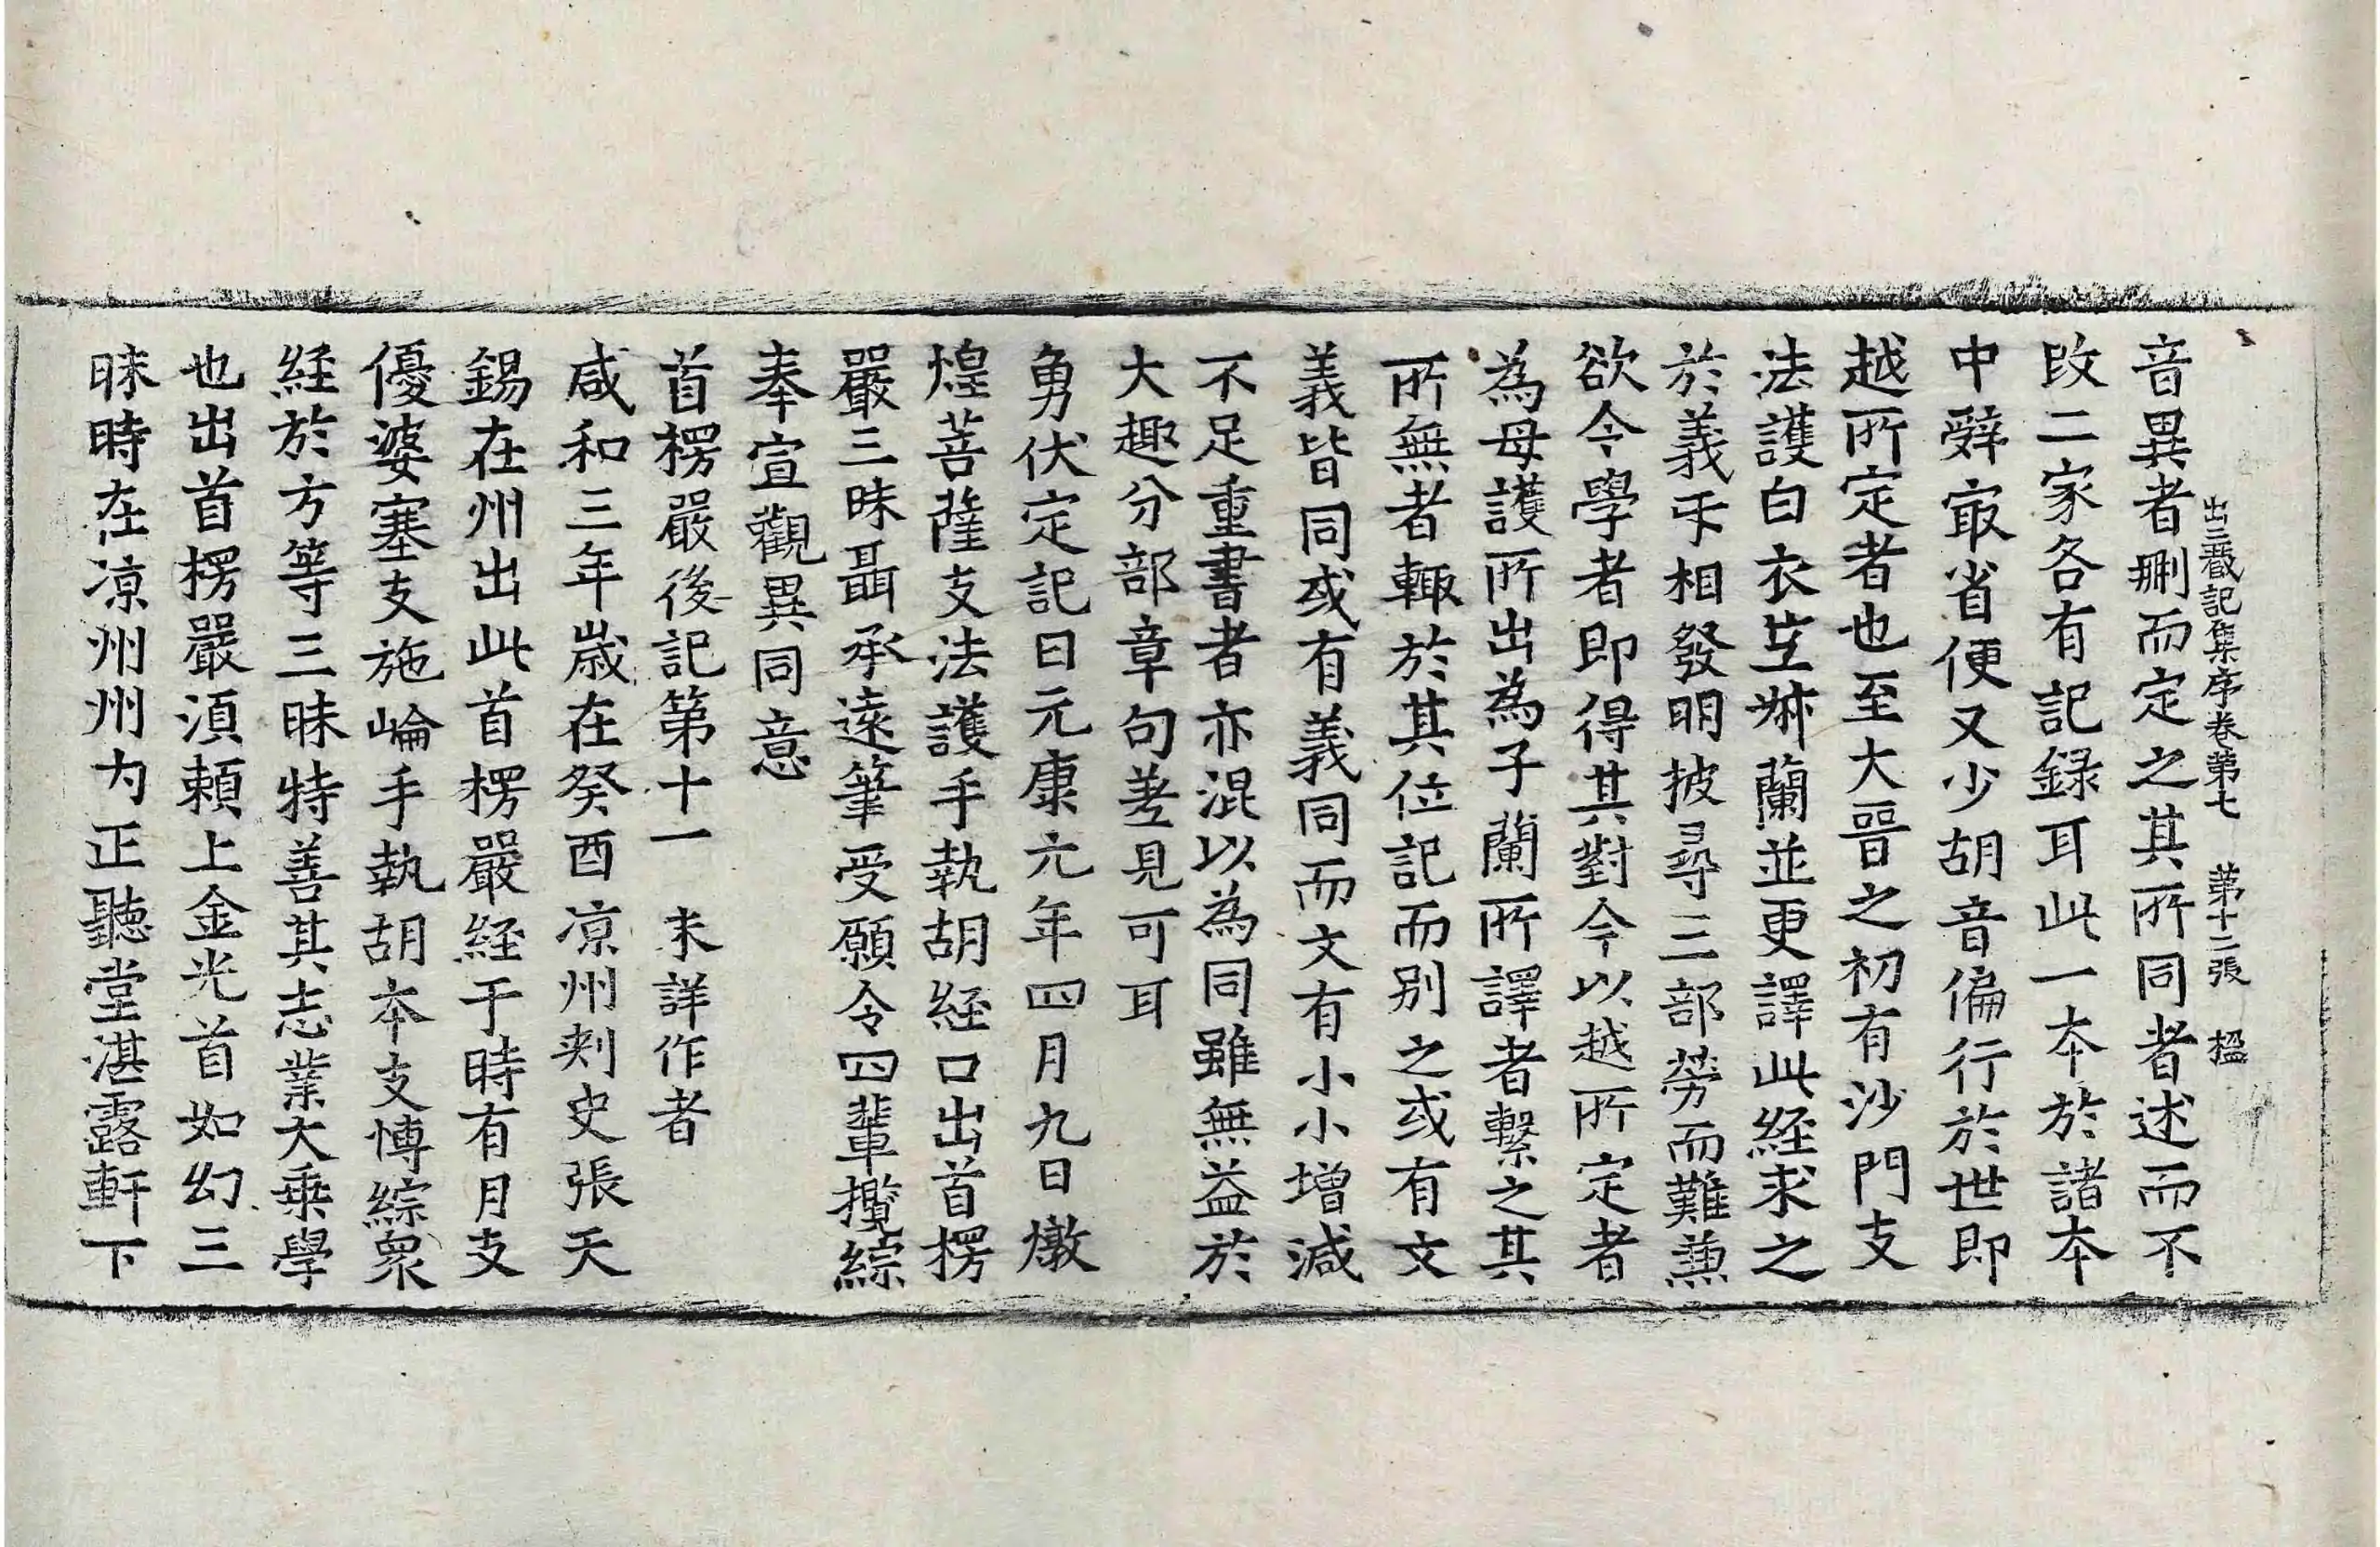 出三藏記集序卷第七 第十二張 楹
音異者刪而定之其所同者述而不
改二家各有記録耳此一本於諸本
中辤㝡省便又少胡音偏行於世即
越所定者也至大晉之初有沙門支
法護白衣竺𣁋蘭並更譯此経求之
於義㸦相發明披尋三部勞而難兼
欲令學者即得其對今以越所定者
為母護所出為子蘭所譯者繫之其
所無者輙於其位記而別之或有文
義皆同或有義同而文有小小增減
不足重書者亦混以為同雖無益於
大趣分部章句差見可耳
勇伏定記曰元康元年四月九日燉
煌菩薩支法護手執胡経口出首楞
嚴三昧聶承遠筆受願令四輩攬綜
奉宣觀異同意
首楞嚴後記第十一 未詳作者
咸和三年歲在癸酉涼州刾史張天
錫在州出此首楞嚴経于時有月支
優婆塞支施崘手執胡本支愽綜衆
経於方等三昧特善其志業大乗學
也出首楞嚴湏頼上金光首如幻三
昧時在涼州州内正聽堂湛露軒下